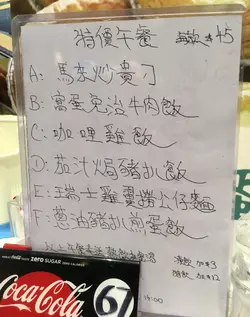 特價午餐 每款 $45
A: 馬來炒貴刁
B: 窩蛋免治牛肉飯
C: 咖哩雞飯
D: 茄汁焗豬扒飯
E: 瑞士雞翼撈公仔麵
F: 蔥油豬扒煎蛋飯
凍飲 加$3
加$12
zero SUGAR
Coca-Cola
67
14:00